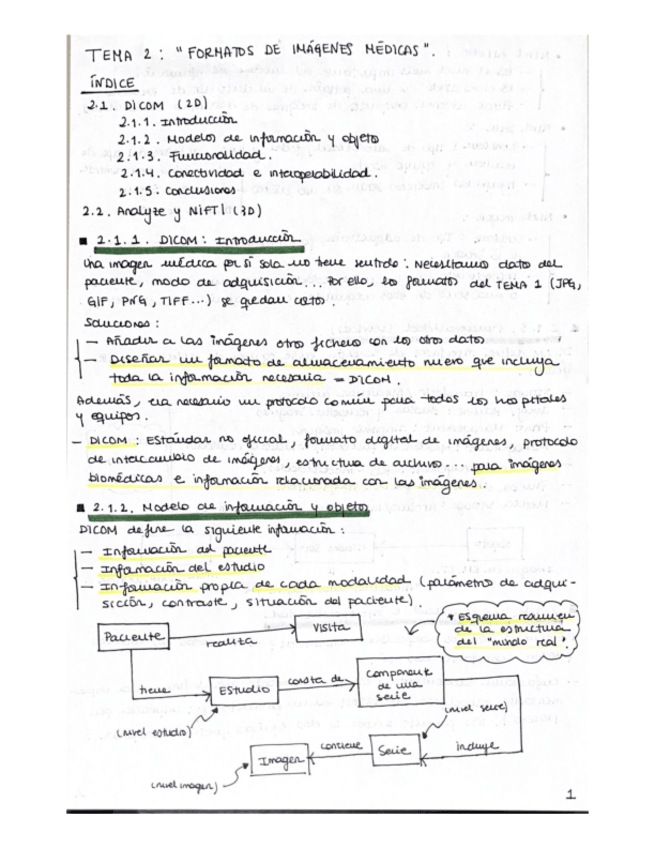 TEMA 2: "FORMATOS DE IMÁGENES MÉDICAS".
ÍNDICE
2.1. DICOM (2D)
2.1.1. Introducción
2.1.2. Modelos de información y objeto
2.1.3. Funcionalidad.
2.1.4. Conectividad e interoperabilidad.
2.1.5. Conclusiones
2.2. Analyze y NIFTI (3D)
■ 2.1.1. DICOM: Introducción
Una imagen médica por sí sola no tiene sentido: Necesitamos datos del
paciente, modo de adquisición... Por ello, los formatos del TEMA 1 (JPG,
GIF, PNG, TIFF...) se quedan cortos.
Soluciones:
— Añadir a las imágenes otro fichero con los otros datos
— Diseñar un formato de almacenamiento nuevo que incluya
toda la información necesaria = DICOM.
Además, era necesario un protocolo común para todos los hospitales
y equipos.
— DICOM: Estándar no oficial, formato digital de imágenes, protocolo
de intercambio de imágenes, estructura de archivo... para imágenes
biomédicas e información relacionada con las imágenes.
■ 2.1.2. Modelo de información y objetos
DICOM define la siguiente información:
— Información del paciente
— Información del estudio
— Información propia de cada modalidad (parámetros de adqui-
sicción, contraste, situación del paciente).
* Esquema resumen
de la estructura
del "mundo real".
Paciente
realiza
Visita
tiene
Estudio
consta de
Componente
de una
serie
(nivel estudio)
(nivel serie)
Imagen
contiene
Serie
incluye
(nivel imagen)
1